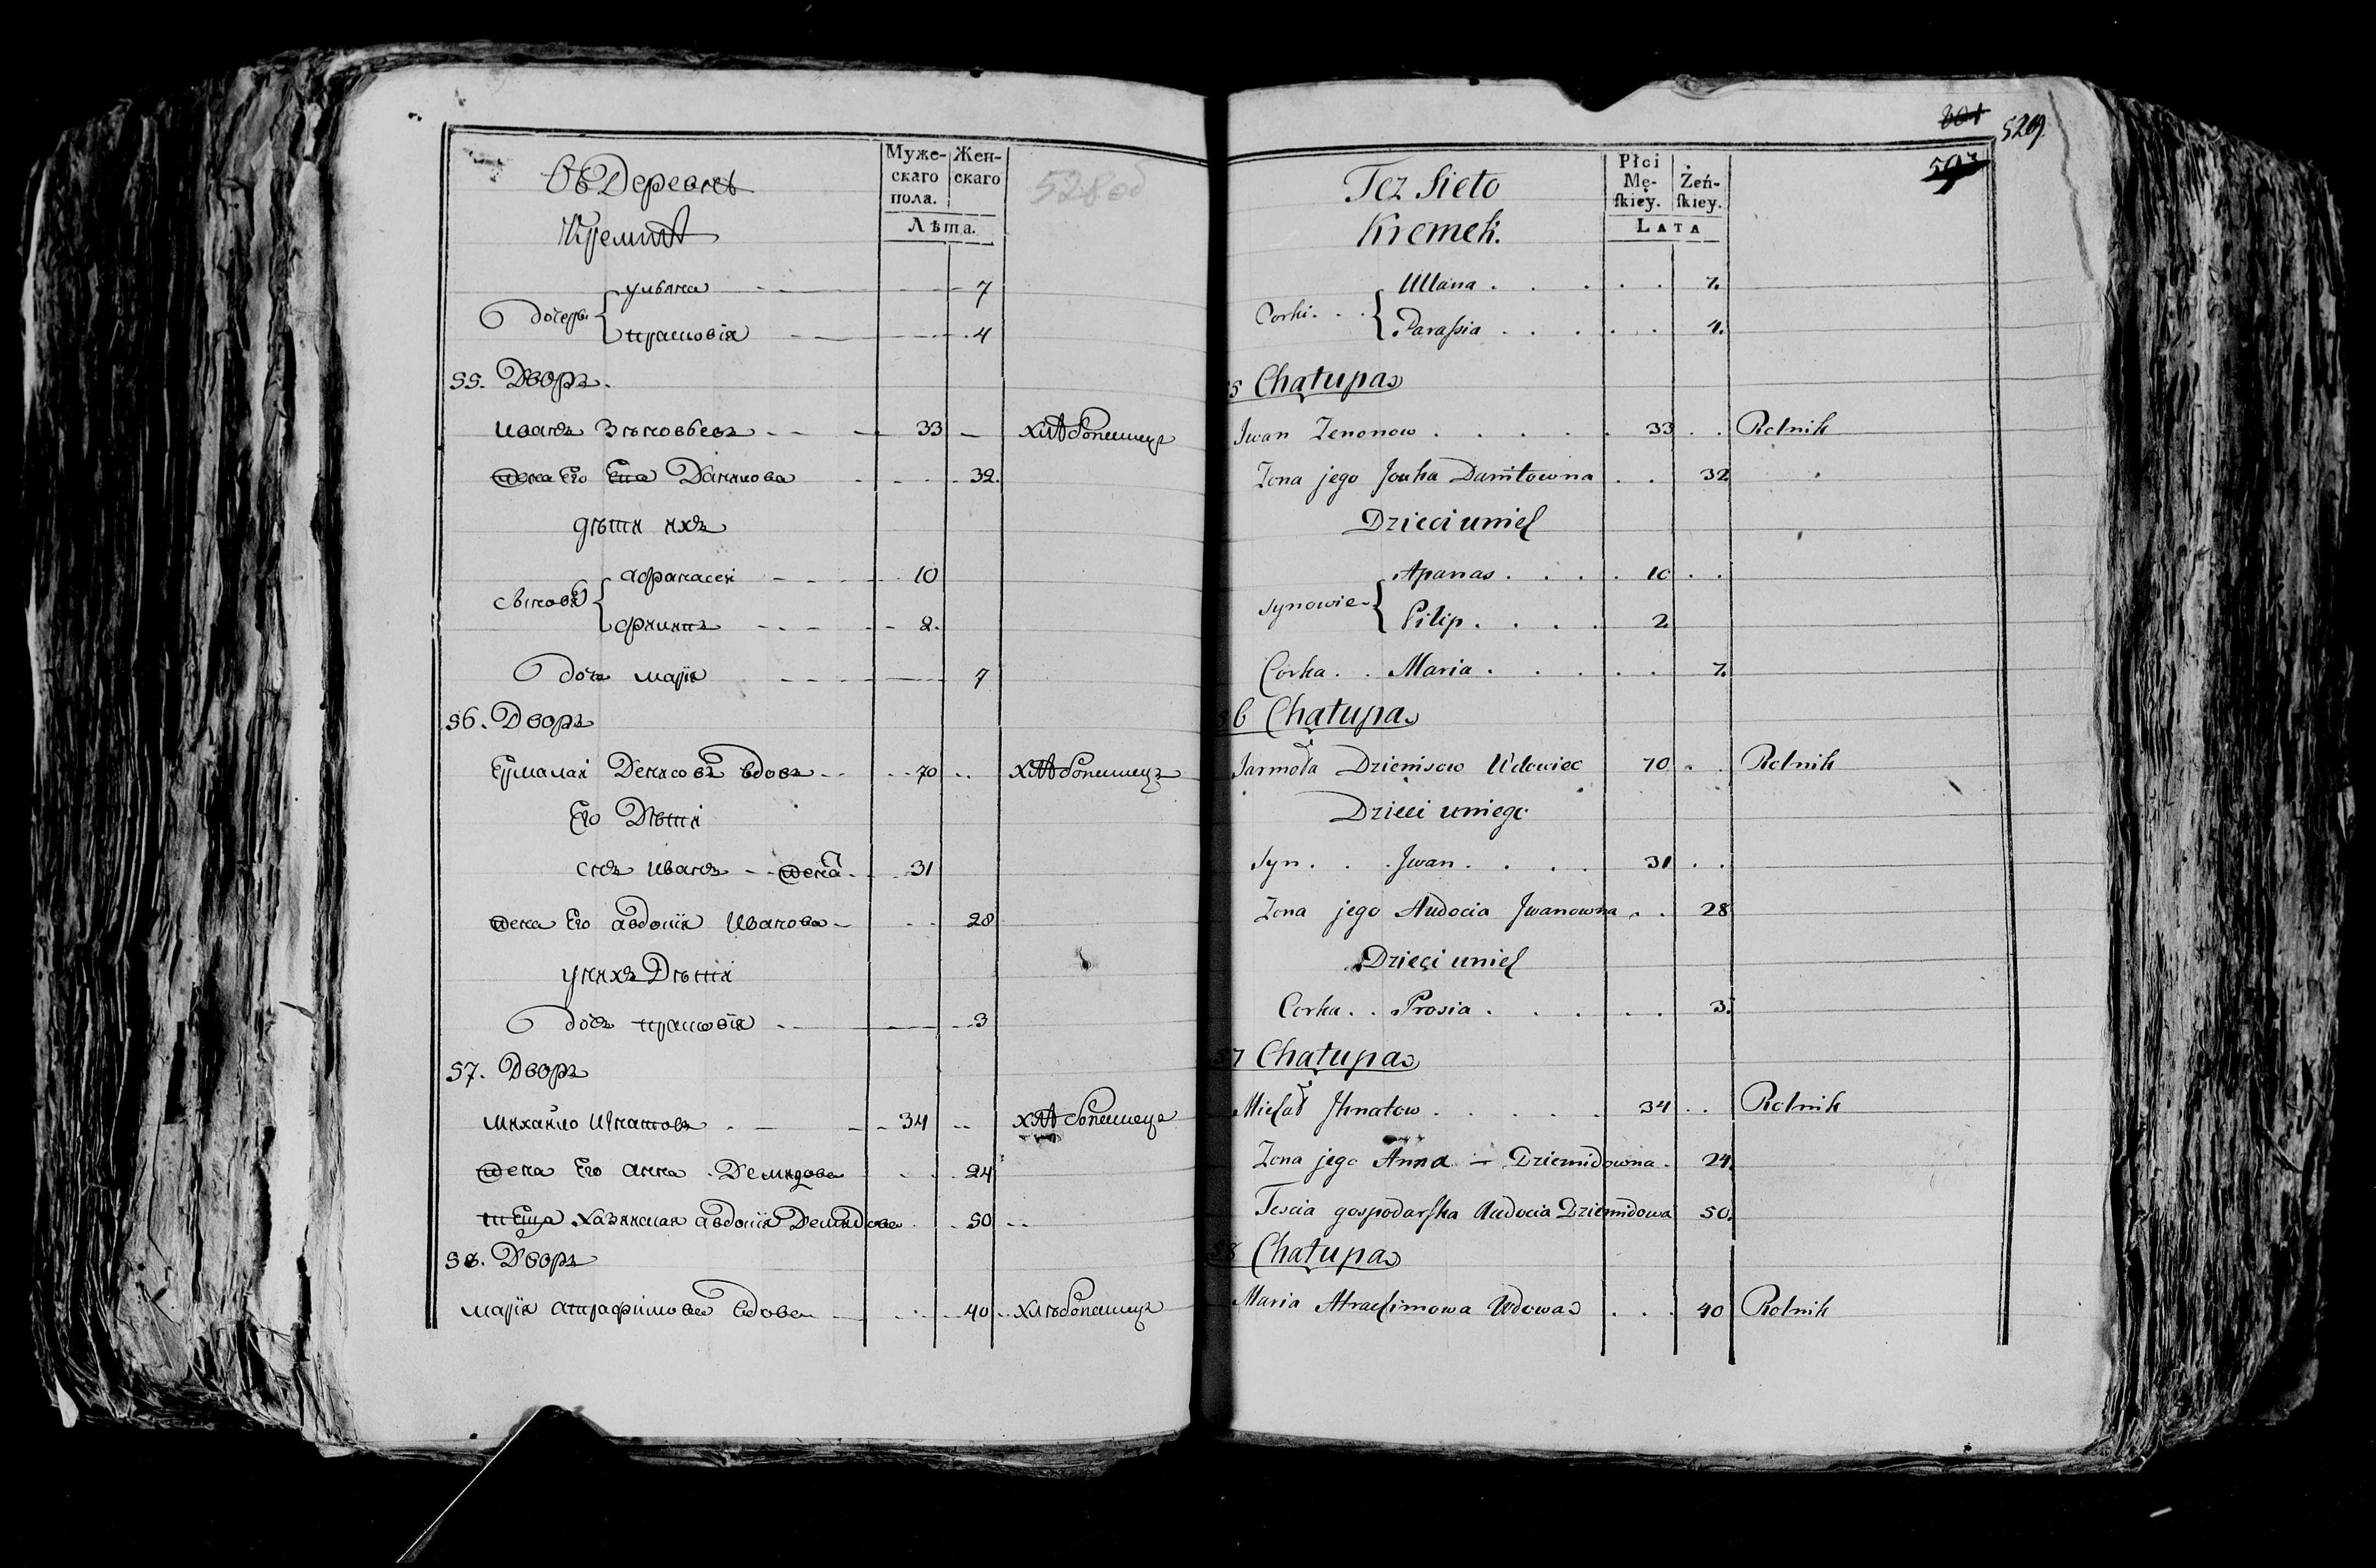 Въ Деревнѣ
Кремкѣ
Муже-
скаго
пола.
Жен-
скаго
Лѣта.
528 об
дочери
ульяна 7
прасковія 4
55. Дворъ.
иванъ Зѣновьевъ 33 хлѣбопашецъ
жена Его Данилова 32.
дѣти ихъ
сыновья
афанасей 10
филипъ 2.
дочь марія 7
56. Дворъ
Ермалай Денисовъ вдовъ 70 хлѣбопашецъ
Его Дѣти
сынъ иванъ 31
жена Его авдотія Иванова 28
у нихъ Дѣти
дочь прасковія 3
57. Дворъ
михайло Игнатовъ 34 хлѣбопашецъ
жена Его анна Демидова 24
теща хазяйская авдотія Демидова 50
58. Дворъ
марія атрафимова вдова 40 хлѣбопашецъ
801
529.
593
Też Sieło
Kremek.
Płci
Mę-
ſkiey.
Żeń-
ſkiey.
LATA
Corki
Ullana 7.
Paraſsia 4.
55 Chałupa
Jwan Zenonow 33 Rolnik
Zona jego Jouka Daniłowna 32
Dzieci unich
Synowie
Apanas 10
Pilip 2
Corka Maria 7.
56 Chałupa
Jarmoła Dzienisow Wdowiec 70 Rolnik
Dzieci uniego
Syn Jwan 31
Zona jego Audocia Jwanowna 28
Dzieci unich
Corka Prosia 3.
57 Chałupa
Michał Jhnatow 34 Rolnik
Zona jego Anna Dziemidowna 24
Tescia gospodarſka Audocia Dziemidowa 50.
58 Chałupa
Maria Atrachimowa Wdowa 40 Rolnik